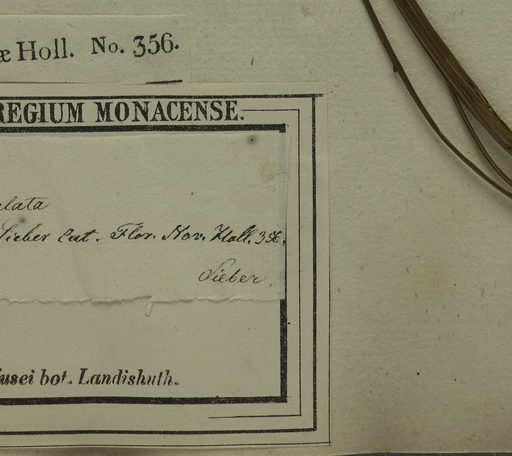 æ Holl. No. 356.
REGIUM MONACENSE.
elata
Sieber Cat. Flor. Nov. Holl. 356.
Sieber.
usei bot. Landishuth.